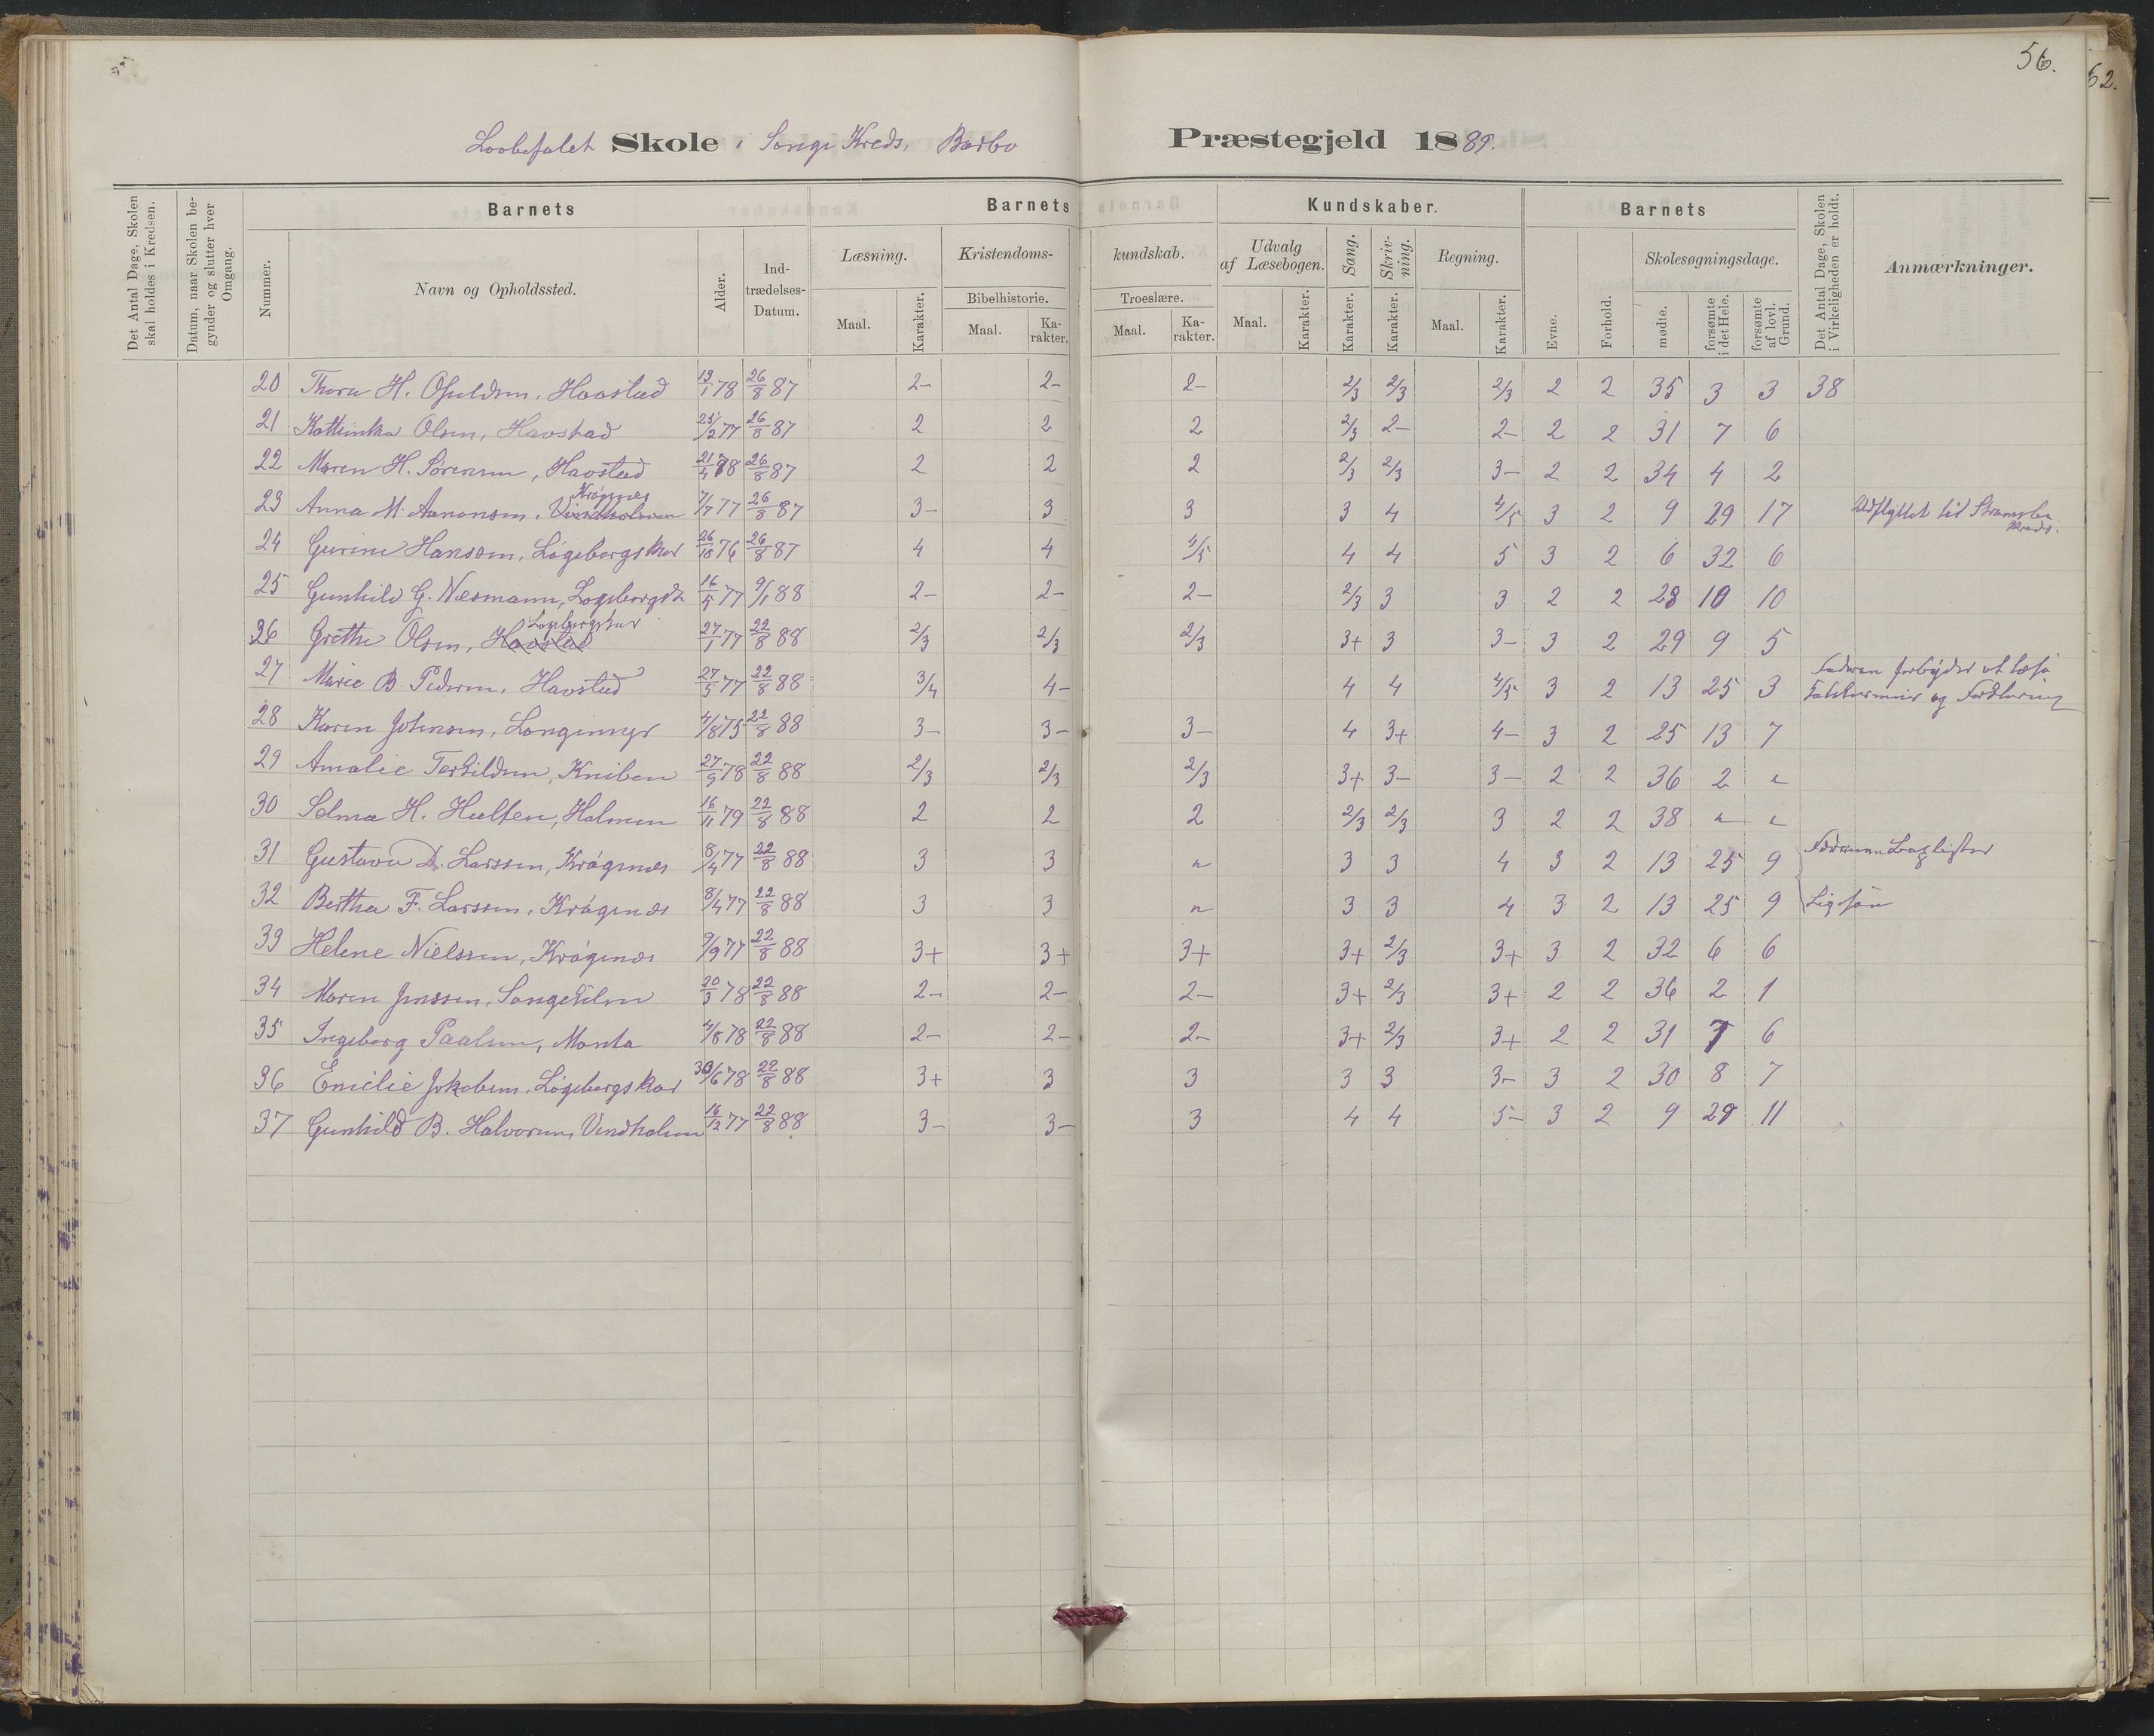 56.
62.
Skole i Songe Kreds, Barbo Præstegjeld 1889.
Det Antal Dage, Skolen skal holdes i Kredsen.
Datum, naar Skolen begynder og slutter hver Omgang.
Barnets
Nummer.
Navn og Opholdssted.
Alder.
Indtrædelses-Datum.
Barnets Kundskaber.
Læsning.
Maal.
Karakter.
Kristendomskundskab.
Bibelhistorie.
Maal.
Karakter.
Troeslære.
Maal.
Karakter.
Udvalg af Læsebogen.
Maal.
Karakter.
Sang.
Karakter.
Skrivning.
Karakter.
Regning.
Maal.
Karakter.
Barnets
Evne.
Forhold.
Skolesøgningsdage.
mødte.
forsømte i det Hele.
forsømte af lovl. Grund.
Det Antal Dage, Skolen i Virkeligheden er holdt.
Anmærkninger.
20 Thora H. Havstad 19/1 78 26/8 87 2- 2- 2- 2/3 2/3 2/3 2 2 35 3 3 38
21 Kathinka Olsen, Havstad 25/2 77 26/8 87 2 2 2 2/3 2- 2- 2 2 31 7 6
22 Maren H. Sørensen, Havstad 21/4 78 26/8 87 2 2 2 2/3 2/3 3- 2 2 34 4 2
23 Anna M. Aanonsen, Vindholmen Krøgenes 7/7 77 26/8 87 3- 3 3 3 4 4/5 3 2 9 29 17 Udflyttet til Strømsbo Kreds.
24 Gurine Hansen, Løgebergskar 26/10 76 26/8 87 4 4 4/5 4 4 5 3 2 6 32 6
25 Gunhild G. Næsmann, Løgebergsk 16/5 77 9/1 88 2- 2- 2- 2/3 3 3 2 2 28 10 10
26 Grethe Olsen, Havstad Løgebergskar 27/1 77 22/8 88 2/3 2/3 2/3 3+ 3 3- 3 2 29 9 5
27 Marie B. Pedersen, Havstad 27/5 77 22/8 88 3/4 4- 4 4 4/5 3 2 13 25 3 Faderen forbyder at læse og Forklaring
28 Karen Johnsen, Langemyr 4/8 75 22/8 88 3- 3- 3- 4 3+ 4- 3 2 25 13 7
29 Amalie Terkildsen, Kniben 27/9 78 22/8 88 2/3 2/3 2/3 3+ 3- 3- 2 2 36 2 "
30 Selma H. Hulten, Holmen 16/11 79 22/8 88 2 2 2 2/3 2/3 3 2 2 38 " "
31 Gustava D. Larssen, Krøgenes 8/4 77 22/8 88 3 3 " 3 3 4 3 2 13 25 9
32 Berthe F. Larssen, Krøgenes 8/4 77 22/8 88 3 3 " 3 3 4 3 2 13 25 9
33 Helene Nielssen, Krøgenes 9/9 77 22/8 88 3+ 3+ 3+ 3+ 2/3 3+ 3 2 32 6 6
34 Maren Jenssen, Songekilen 20/3 78 22/8 88 2- 2- 2- 3+ 2/3 3+ 2 2 36 2 1
35 Ingeborg Paalsen, Monta 4/8 78 22/8 88 2- 2- 2- 3+ 2/3 3+ 2 2 31 7 6
36 Emilie Jakobsen, Løgebergskar 30/6 78 22/8 88 3+ 3 3 3 3 3- 3 2 30 8 7
37 Gunhild B. Halvorsen, Vindholmen 16/12 77 22/8 88 3- 3- 3 4 4 5- 3 2 9 29 11